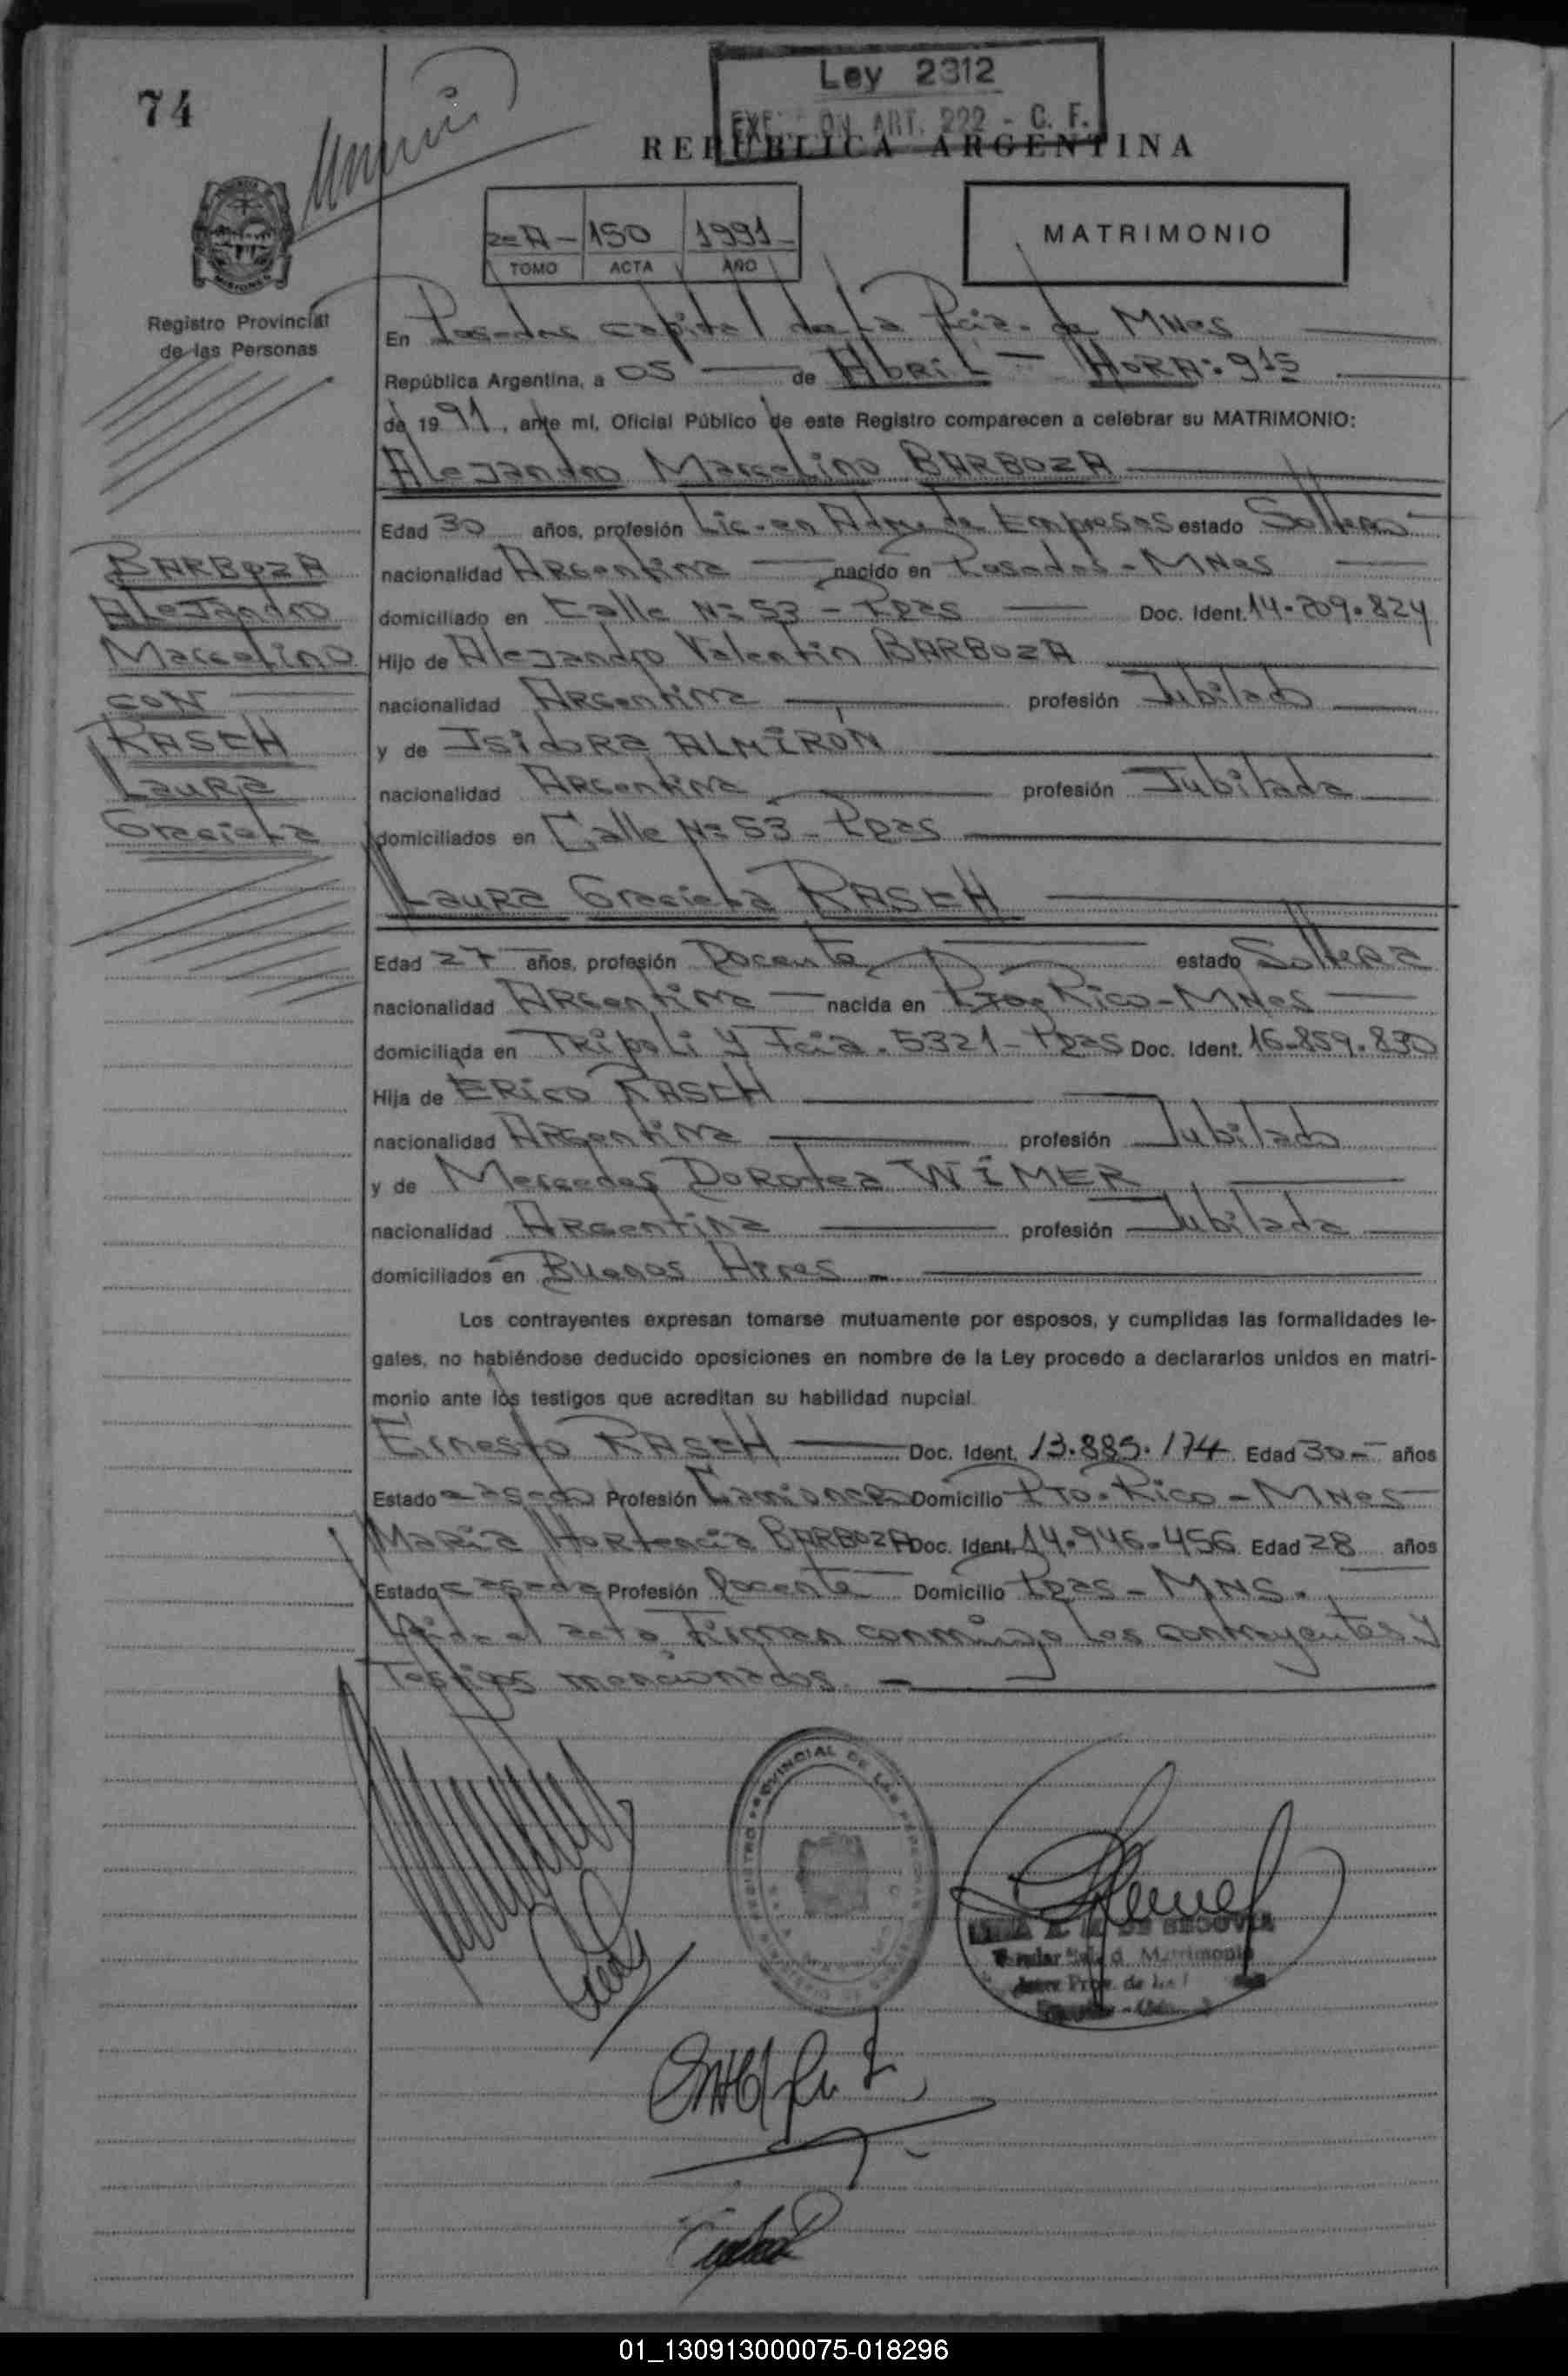 74
Ley 2312
ART. 222 - C. F.
REPUBLICA ARGENTINA
2=A- 150 1991-
TOMO ACTA AÑO
MATRIMONIO
Registro Provincial
de las Personas
En Posadas capital de la Pcia. de MNes
República Argentina, a 05 de Abril - HORA: 915
de 1991, ante mi, Oficial Público de este Registro comparecen a celebrar su MATRIMONIO:
Alejandro Marcelino BARBOZA
Edad 30 años, profesión Lic. en Adm. de Empresas estado Soltero
nacionalidad Argentina nacido en Posadas - MNes
domiciliado en Calle Nº 53 - Pdas Doc. Ident. 14.209.824
Hijo de Alejandro Valentin BARBOZA
nacionalidad Argentina profesión Jubilado
y de Isidora ALMIRÓN
nacionalidad Argentina profesión Jubilada
domiciliados en Calle Nº 53 - Pdas
BARBOZA
Alejandro
Marcelino
CON
RASCH
Laura
Graciela
Laura Graciela RASCH
Edad 27 años, profesión Docente estado Soltera
nacionalidad Argentina nacida en Pto. Rico - MNes
domiciliada en Tripoli y Fcia. 5321 - Pdas Doc. Ident. 16.859.830
Hija de ERico RASCH
nacionalidad Argentina profesión Jubilado
y de Mercedes Dorotea WIMER
nacionalidad Argentina profesión Jubilada
domiciliados en Buenos Aires -
Los contrayentes expresan tomarse mutuamente por esposos, y cumplidas las formalidades le-
gales, no habiéndose deducido oposiciones en nombre de la Ley procedo a declararlos unidos en matri-
monio ante los testigos que acreditan su habilidad nupcial.
Ernesto RASCH Doc. Ident. 13.885.174 Edad 30 - años
Estado casado Profesión Camionero Domicilio Pto. Rico - MNes
Maria Hortencia BARBOZA Doc. Ident. 14.946.456 Edad 28 años
Estado casada Profesión Docente Domicilio Pdas - MNS.
Leida el acta, Firman conmigo los contrayentes y
Testigos mencionados. -
REGISTRO PROVINCIAL DE LAS PERSONAS
DE SEGOVIA
Matrimonio
01_130913000075-018296